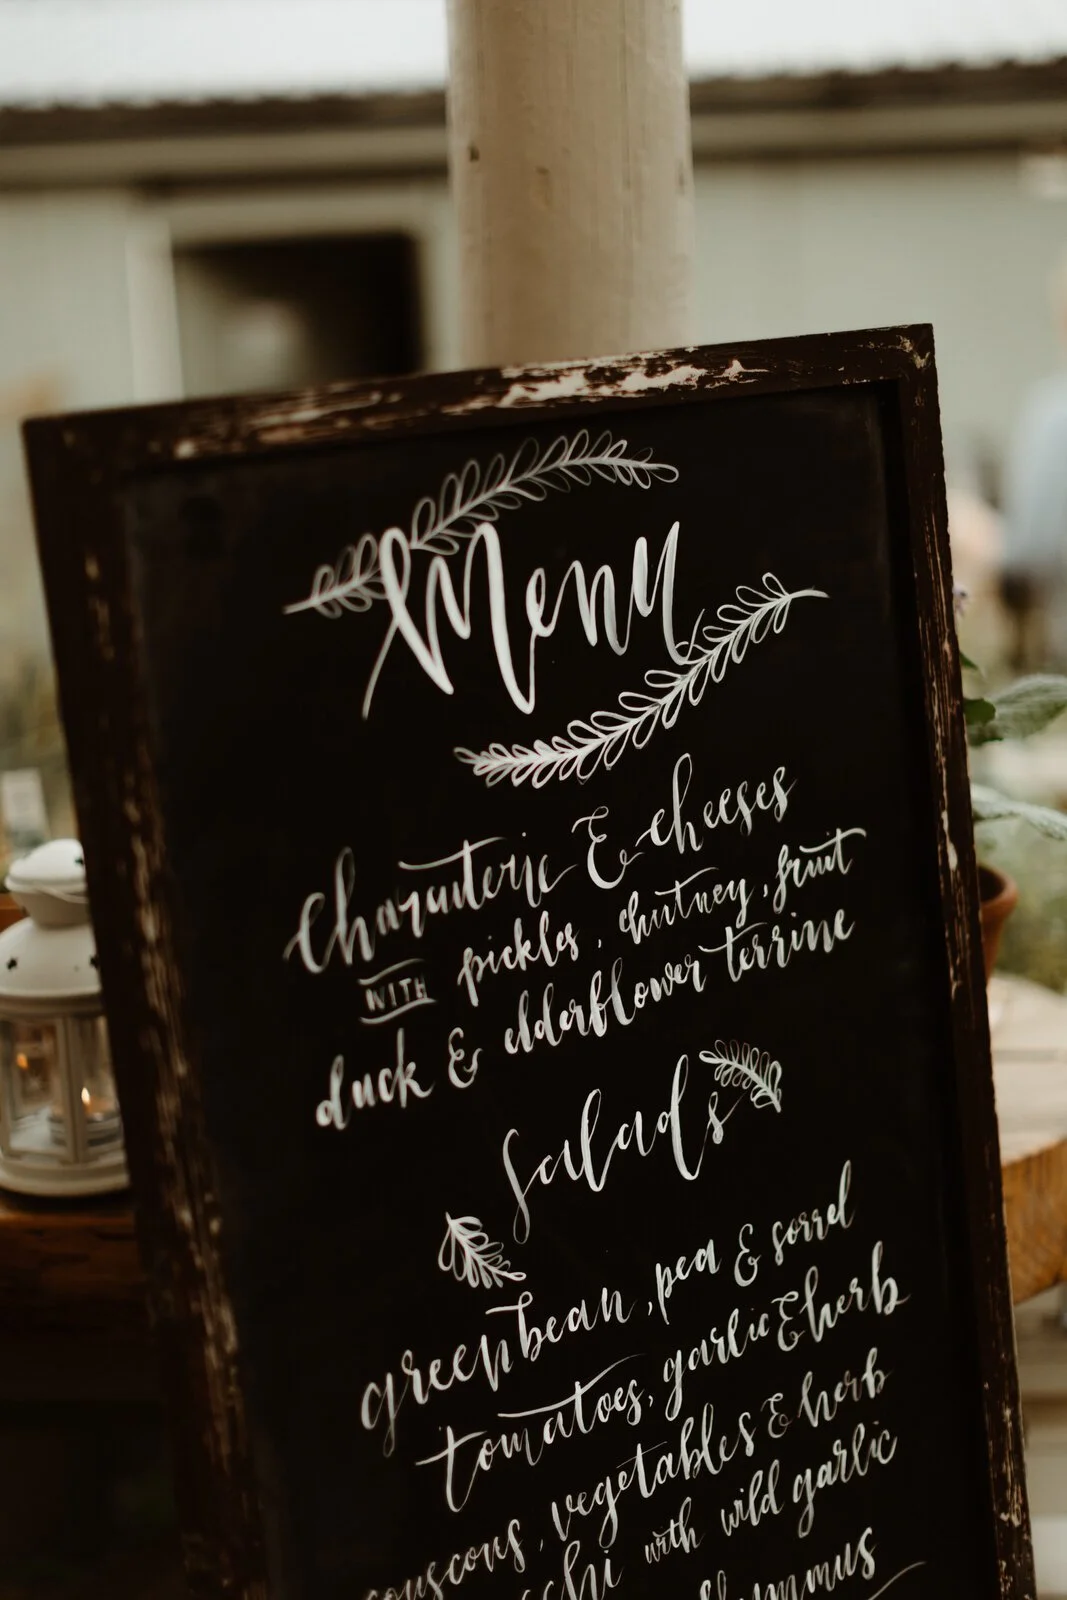 Menu
Charcuterie & cheeses
WITH pickles, chutney, fruit
duck & elderflower terrine
Salads
green bean, pea & sorrel
tomatoes, garlic & herb
couscous, vegetables & herb
with wild garlic
hummus